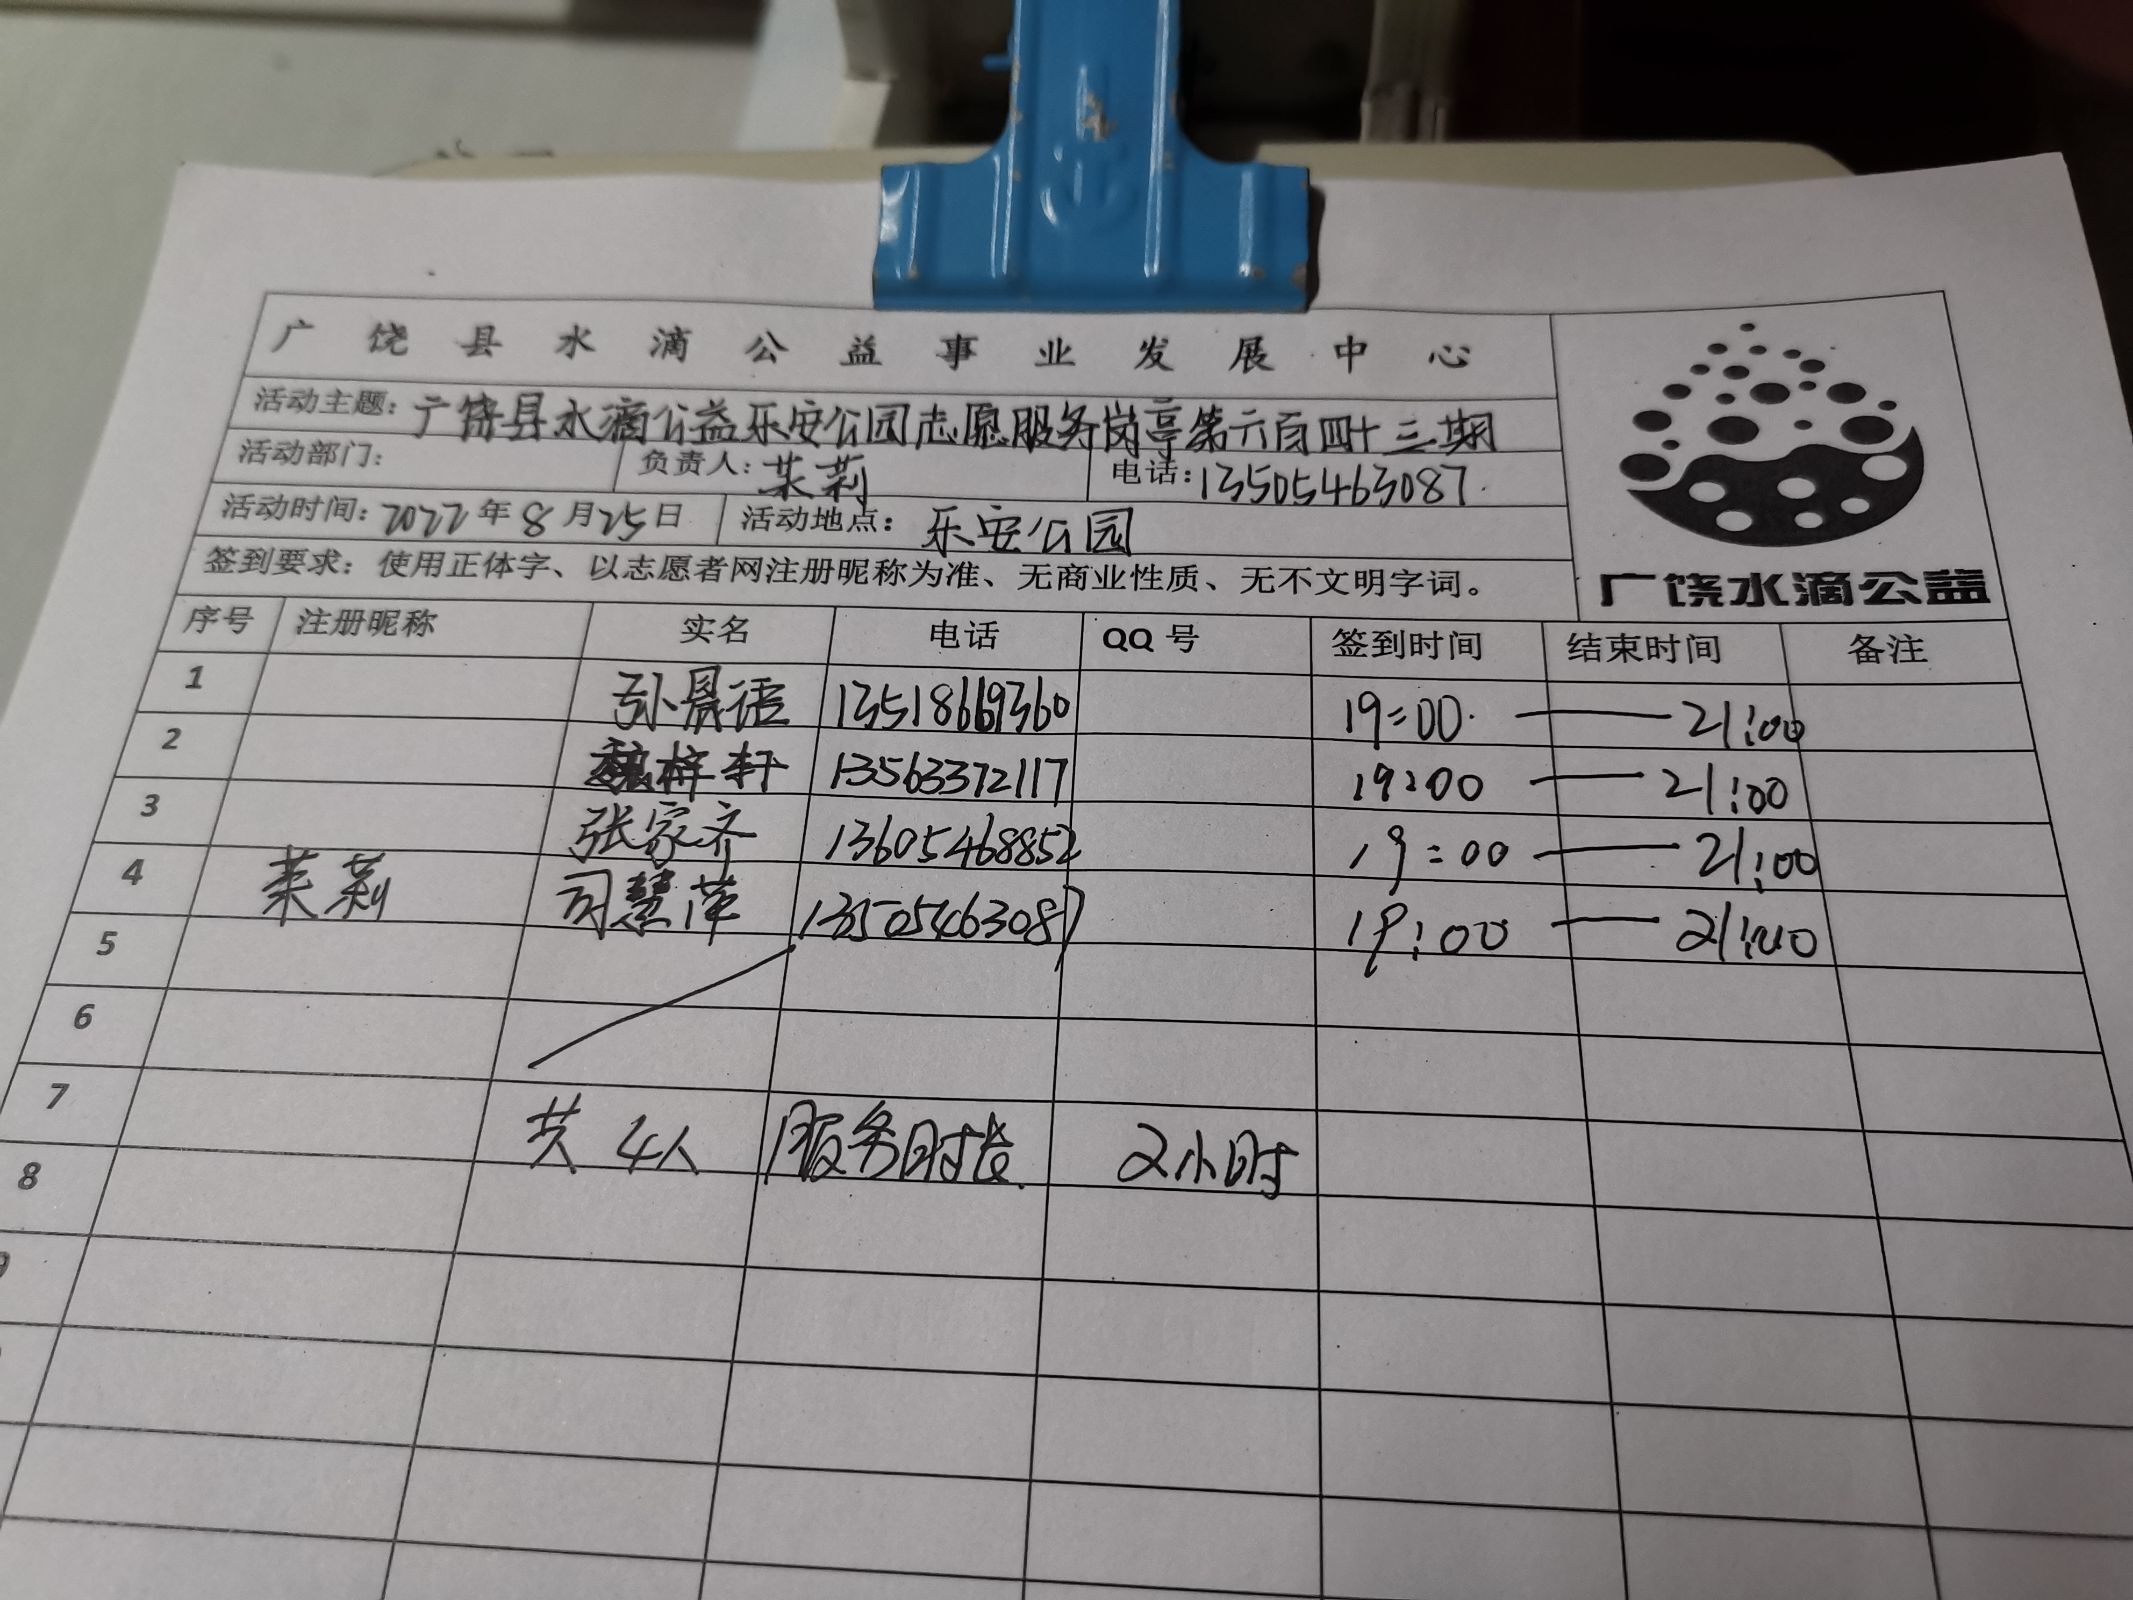 广饶县水滴公益事业发展中心
活动主题：广饶县水滴公益乐安公园志愿服务岗亭第六百四十三期
活动部门： 负责人：茉莉 电话：13505463087.
活动时间：2022年8月25日 活动地点：乐安公园
签到要求：使用正体字、以志愿者网注册昵称为准、无商业性质、无不文明字词。
广饶水滴公益
序号 注册昵称 实名 电话 QQ号 签到时间 结束时间 备注
1 孙晨语 13518669360 19:00. —— 21:00
2 魏梓轩 13563372117 19:00 —— 21:00
3 张家齐 13605468852 19:00 —— 21:00
4 茉莉 司慧萍 13505463087 19:00 —— 21:00
5
6
7 共4人 服务时长 2小时
8
9